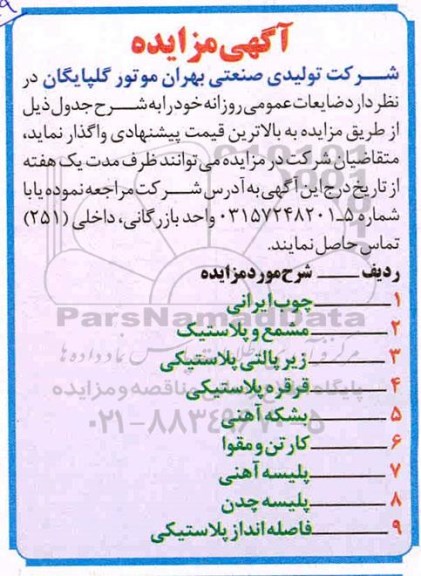 آگهی مزایده
شرکت تولیدی صنعتی بهران موتور گلپایگان در
نظر دارد ضایعات عمومی روزانه خود را به شرح جدول ذیل
از طریق مزایده به بالاترین قیمت پیشنهادی واگذار نماید،
متقاضیان شرکت در مزایده می توانند ظرف مدت یک هفته
از تاریخ درج این آگهی به آدرس شرکت مراجعه نموده یا با
شماره ۵ـ۰۳۱۵۷۲۴۸۲۰۱ واحد بازرگانی، داخلی (۲۵۱)
تماس حاصل نمایند.
ردیف ــــــ شرح مورد مزایده
۱ ــــــ چوب ایرانی
۲ ــــــ مشمع و پلاستیک
ParsNamadData
۳ ــــــ زیر پالتی پلاستیکی
۴ ــــــ قرقره پلاستیکی
پایگاه اطلاع رسانی مناقصه و مزایده
۵ ــــــ بشکه آهنی
۰۲۱-۸۸۳۴۹۶۷۰-۵
۶ ــــــ کارتن و مقوا
۷ ــــــ پلیسه آهنی
۸ ــــــ پلیسه چدن
۹ ــــــ فاصله انداز پلاستیکی